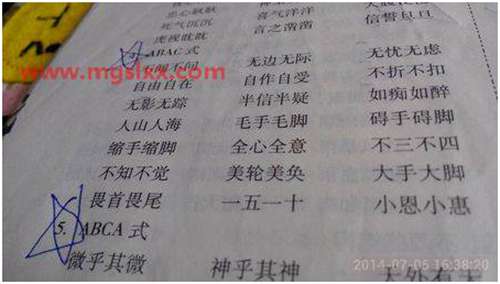 忠心耿耿 喜气洋洋
死气沉沉 言之凿凿 信誓旦旦
虎视眈眈
ABAC 式
不闻不问 无边无际 无忧无虑
www.mgslxx.com
自由自在 自作自受 不折不扣
无影无踪 半信半疑 如痴如醉
人山人海 毛手毛脚 碍手碍脚
缩手缩脚 全心全意 不三不四
不知不觉 美轮美奂 大手大脚
畏首畏尾 一五一十 小恩小惠
5. ABCA 式
微乎其微 神乎其神 天外有天
2014-07-05 16:38:20